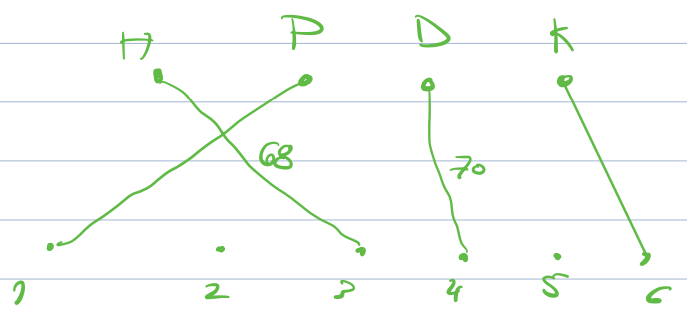 H P D K
68
70
1 2 3 4 5 6